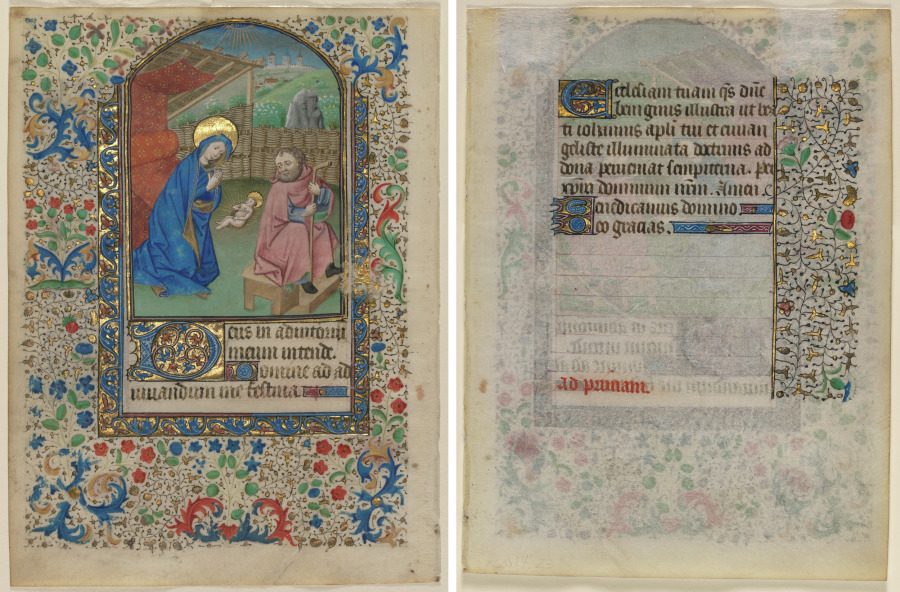 Deus in adiutoriu
meum intende.
Domine ad ad
iuuandum me festina.
Ecclesiam tuam qs dne
benignus illustra ut bea
ti iohannis apli tui et euuan
geliste illuminata doctrinis ad
dona perueniat sempiterna. Per
xpm dominum nrm. Amen.
Benedicamus domino
Deo gracias.
Ad primam.